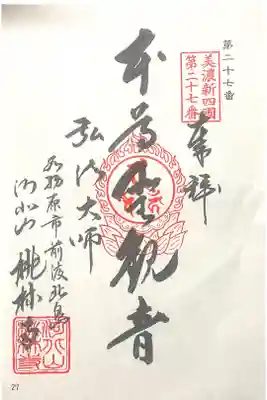 第二十七番
美濃新四国
第二十七番
奉拝
本尊聖観音
弘法大師
各務原市前渡北島
河北山 桃林寺
27